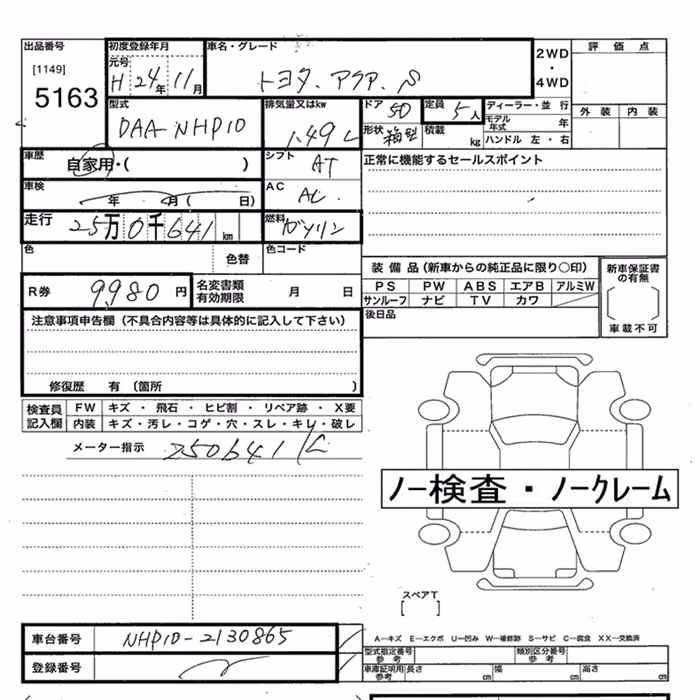 出品番号 初度登録年月 車名・グレード 2WD・4WD 評価点
[1149] 元号
5163 H 24年 11月 トヨタ アクア S
型式 排気量又はkw ドア 50 定員 5人 ディーラー・並行 外装 内装
モデル年式 年
DAA-NHP10 1.49 L 形状 箱型 積載 kg ハンドル 左・右
車歴 自家用・( ) シフト AT 正常に機能するセールスポイント
車検 年 月( 日) AC AC
走行 25万0千641km 燃料 ガソリン
色 色替 色コード
装備品(新車からの純正品に限り○印) 新車保証書の有無
R券 9980円 名変書類有効期限 月 日 PS PW ABS エアB アルミW
サンルーフ ナビ TV カワ
注意事項申告欄(不具合内容等は具体的に記入して下さい) 後日品 車載不可
修復歴 有 (箇所 )
検査員記入欄 FW キズ ・ 飛石 ・ ヒビ割 ・ リペア跡 ・ X要
内装 キズ・汚レ・コゲ・穴・スレ・キレ・破レ
メーター指示 250641
ノー検査・ノークレーム
スペアT
[ ]
車台番号 NHP10-2130865
A―キズ E―エクボ U―凹み W―補修跡 S―サビ C―腐食 XX―交換済
登録番号 型式指定番号 参考 類別区分番号 参考
車庫証明用 参考 長さ cm 幅 cm 高さ cm